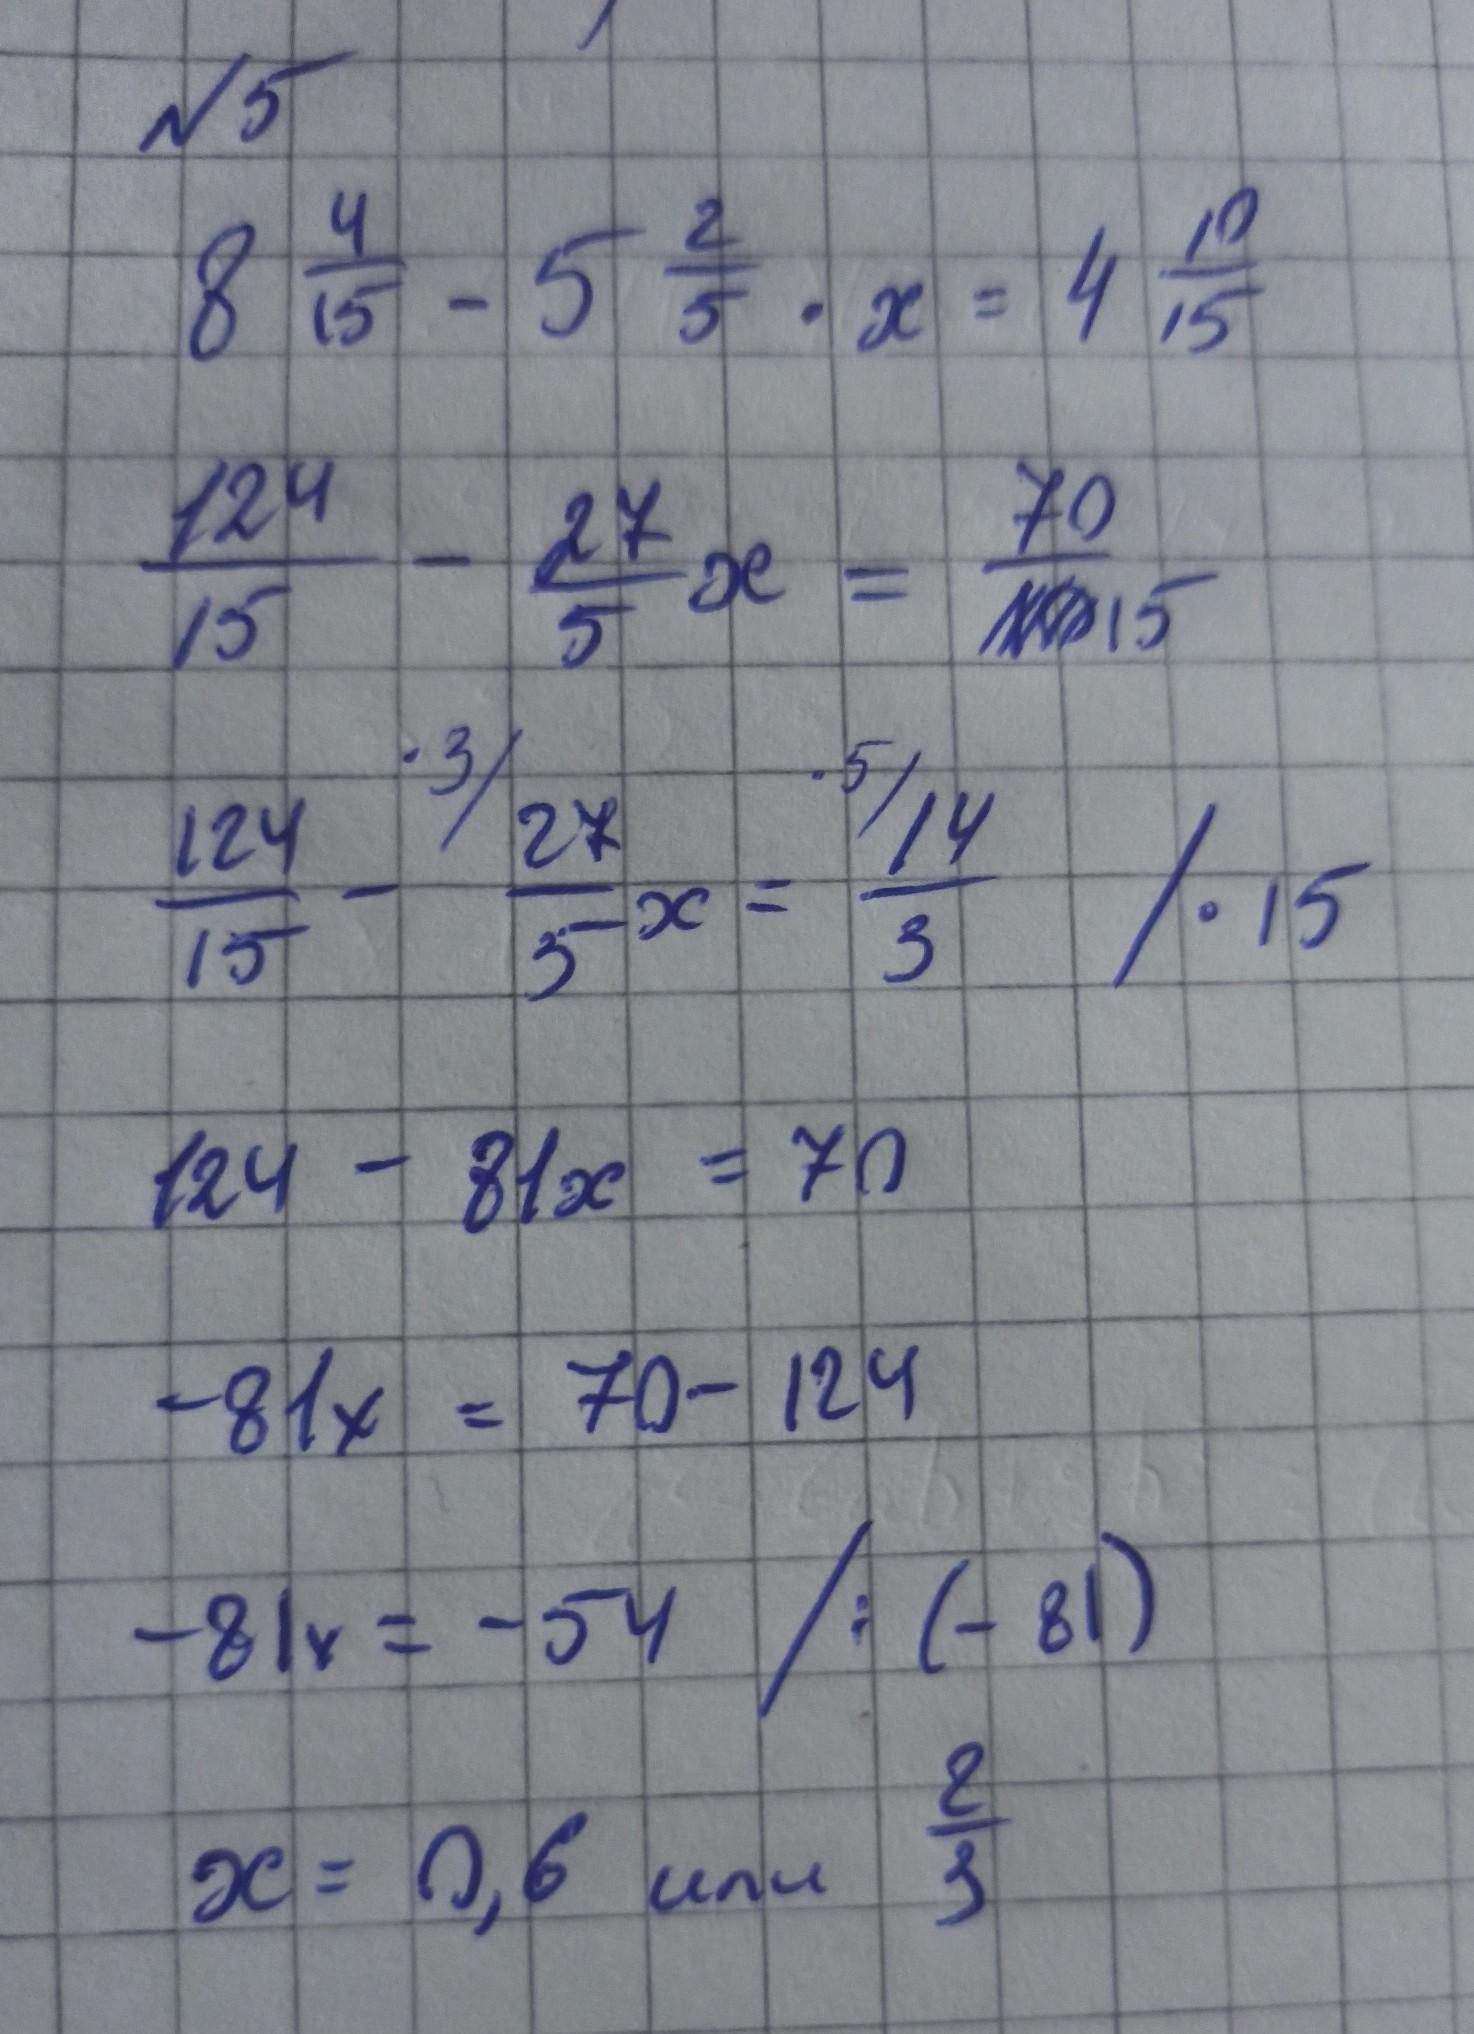 №5
8 4/15 - 5 2/5 · x = 4 10/15
124/15 - 27/5 x = 70/15
124/15 - ·3/ 27/5 x = ·5/ 14/3 / · 15
124 - 81x = 70
-81x = 70 - 124
-81x = -54 / : (-81)
x = 0,6 или 2/3